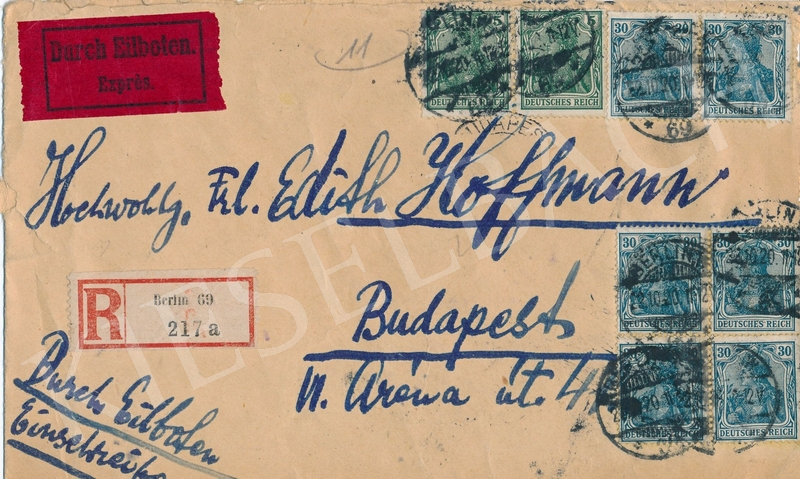 Durch Eilboten.
Exprès.
11
5 5 30 30
DEUTSCHES REICH DEUTSCHES REICH DEUTSCHES REICH DEUTSCHES REICH
69
Hochwohlg. Frl. Edith Hoffmann
R
Berlin 69
217 a
Budapest
Aréna út. 4
30 30
BERLIN
DEUTSCHES REICH
30 30
DEUTSCHES REICH DEUTSCHES REICH
Durch Eilboten
Einschreiben
KIESELBACH